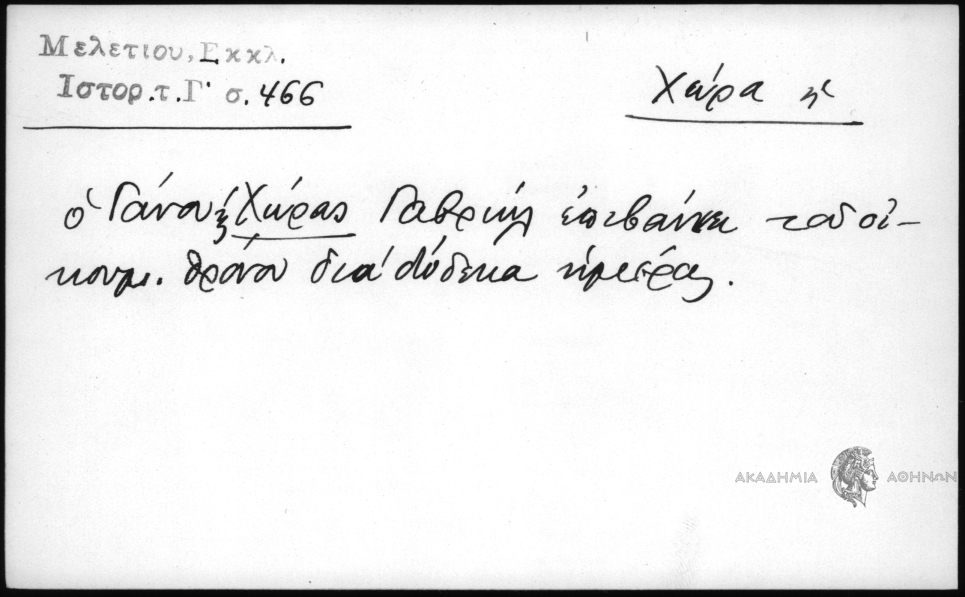 Μελετιου, Εκκλ.
Ιστορ. τ. Γ' σ. 466
Χώρα ἡ
ὁ Γάνου ϗ Χώρας Γαβριήλ ἐπιβαίνει τοῦ οἰ-
κουμ. θρόνου διά δώδεκα ἡμέρας.
ΑΚΑΔΗΜΙΑ ΑΘΗΝΩΝ